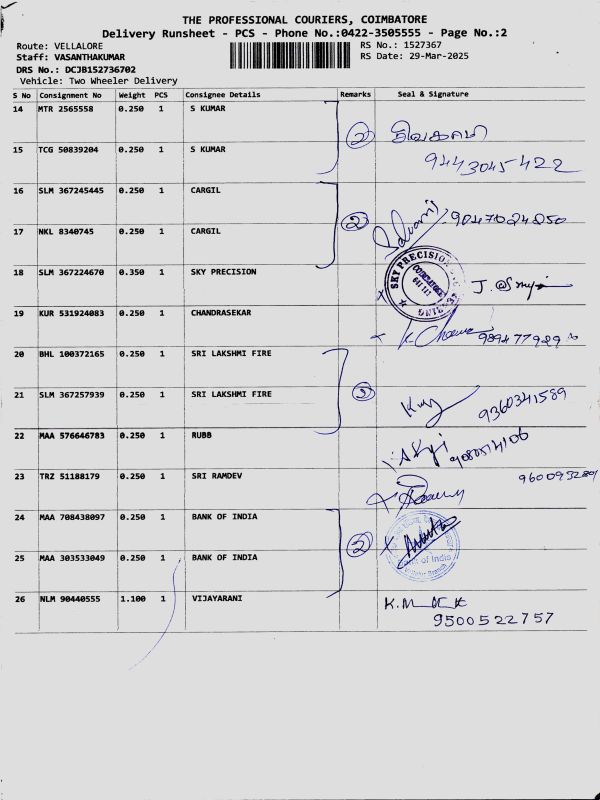 THE PROFESSIONAL COURIERS, COIMBATORE
Delivery Runsheet - PCS - Phone No.:0422-3505555 - Page No.:2
Route: VELLALORE RS No.: 1527367
Staff: VASANTHAKUMAR RS Date: 29-Mar-2025
DRS No.: DCJB152736702
Vehicle: Two Wheeler Delivery
S No Consignment No Weight PCS Consignee Details Remarks Seal & Signature
14 MTR 2565558 0.250 1 S KUMAR
2
15 TCG 50839204 0.250 1 S KUMAR
9443045422
16 SLM 367245445 0.250 1 CARGIL
2 9047024850
17 NKL 8340745 0.250 1 CARGIL
18 SLM 367224670 0.350 1 SKY PRECISION
SKY PRECISION
19 KUR 531924083 0.250 1 CHANDRASEKAR
20 BHL 100372165 0.250 1 SRI LAKSHMI FIRE
2
21 SLM 367257939 0.250 1 SRI LAKSHMI FIRE
9360341589
22 MAA 576646783 0.250 1 RUBB
23 TRZ 51188179 0.250 1 SRI RAMDEV
24 MAA 708438097 0.250 1 BANK OF INDIA
2
25 MAA 303533049 0.250 1 BANK OF INDIA
Bank of India
26 NLM 90440555 1.100 1 VIJAYARANI
9500522757